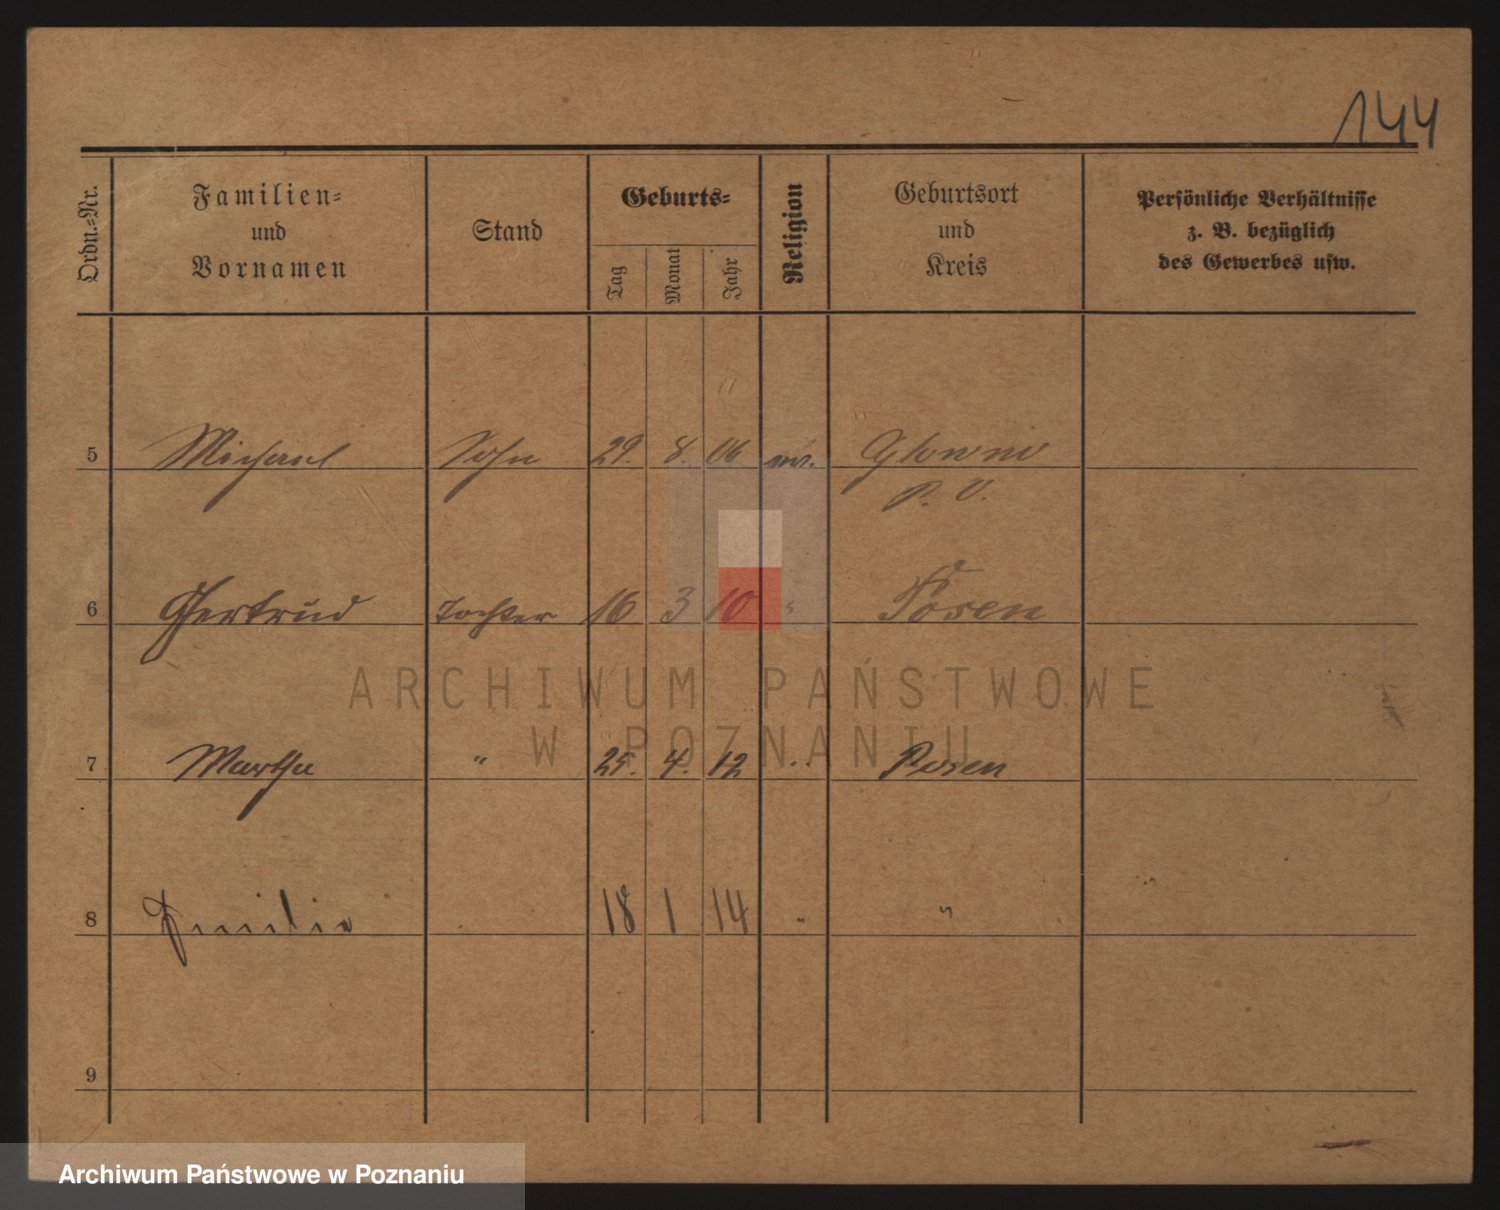 144
Ordn.-Nr.
Familien-
und
Vornamen
Stand
Geburts-
Tag
Monat
Jahr
Religion
Geburtsort
und
Kreis
Persönliche Verhältnisse
z. B. bezüglich
des Gewerbes usw.
5 Michael Sohn 29. 8. 06 Glowno
P. O.
6 Gertrud Tochter 16 3 10 " Posen
ARCHIWUM PAŃSTWOWE
W POZNANIU
7 Martha " 25. 4. 12 " Posen
8 18 1 14 " "
9
Archiwum Państwowe w Poznaniu